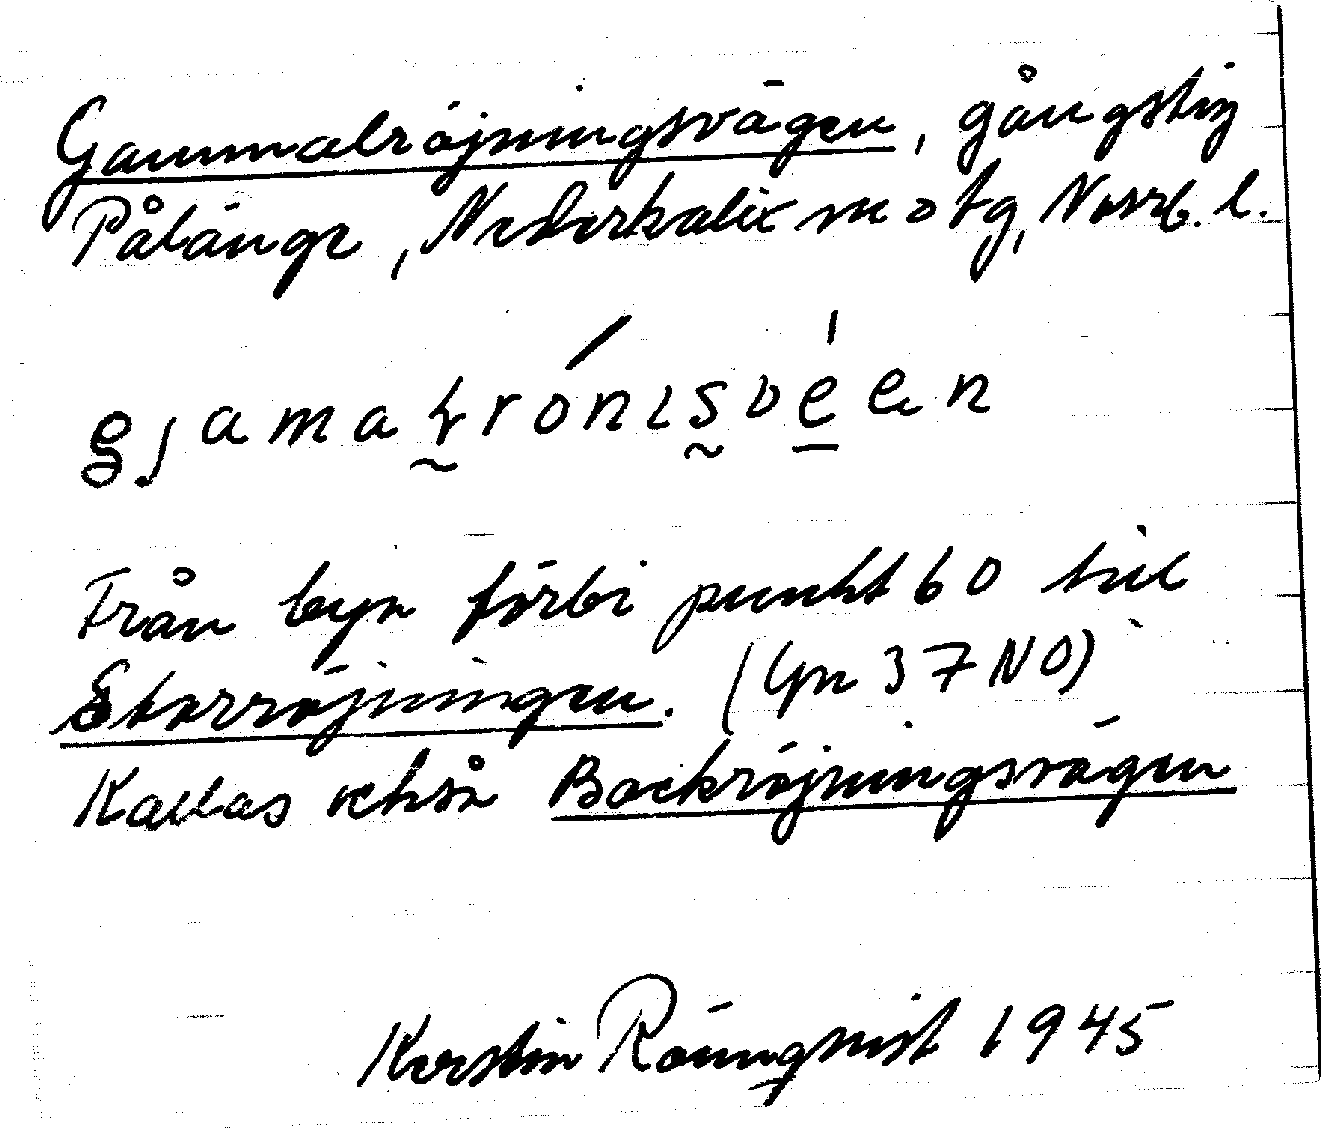 Gammalröjningsvägen, gångstig
Pålänge, Nederkalix sn o tg, Norrb. l.
gjamaɫrónısvéen
Från byn förbi punkt 60 till
Storröjningen. (Gm 37 NO)
Kallas också Backröjningsvägen
Kerstin Rönnqvist 1945